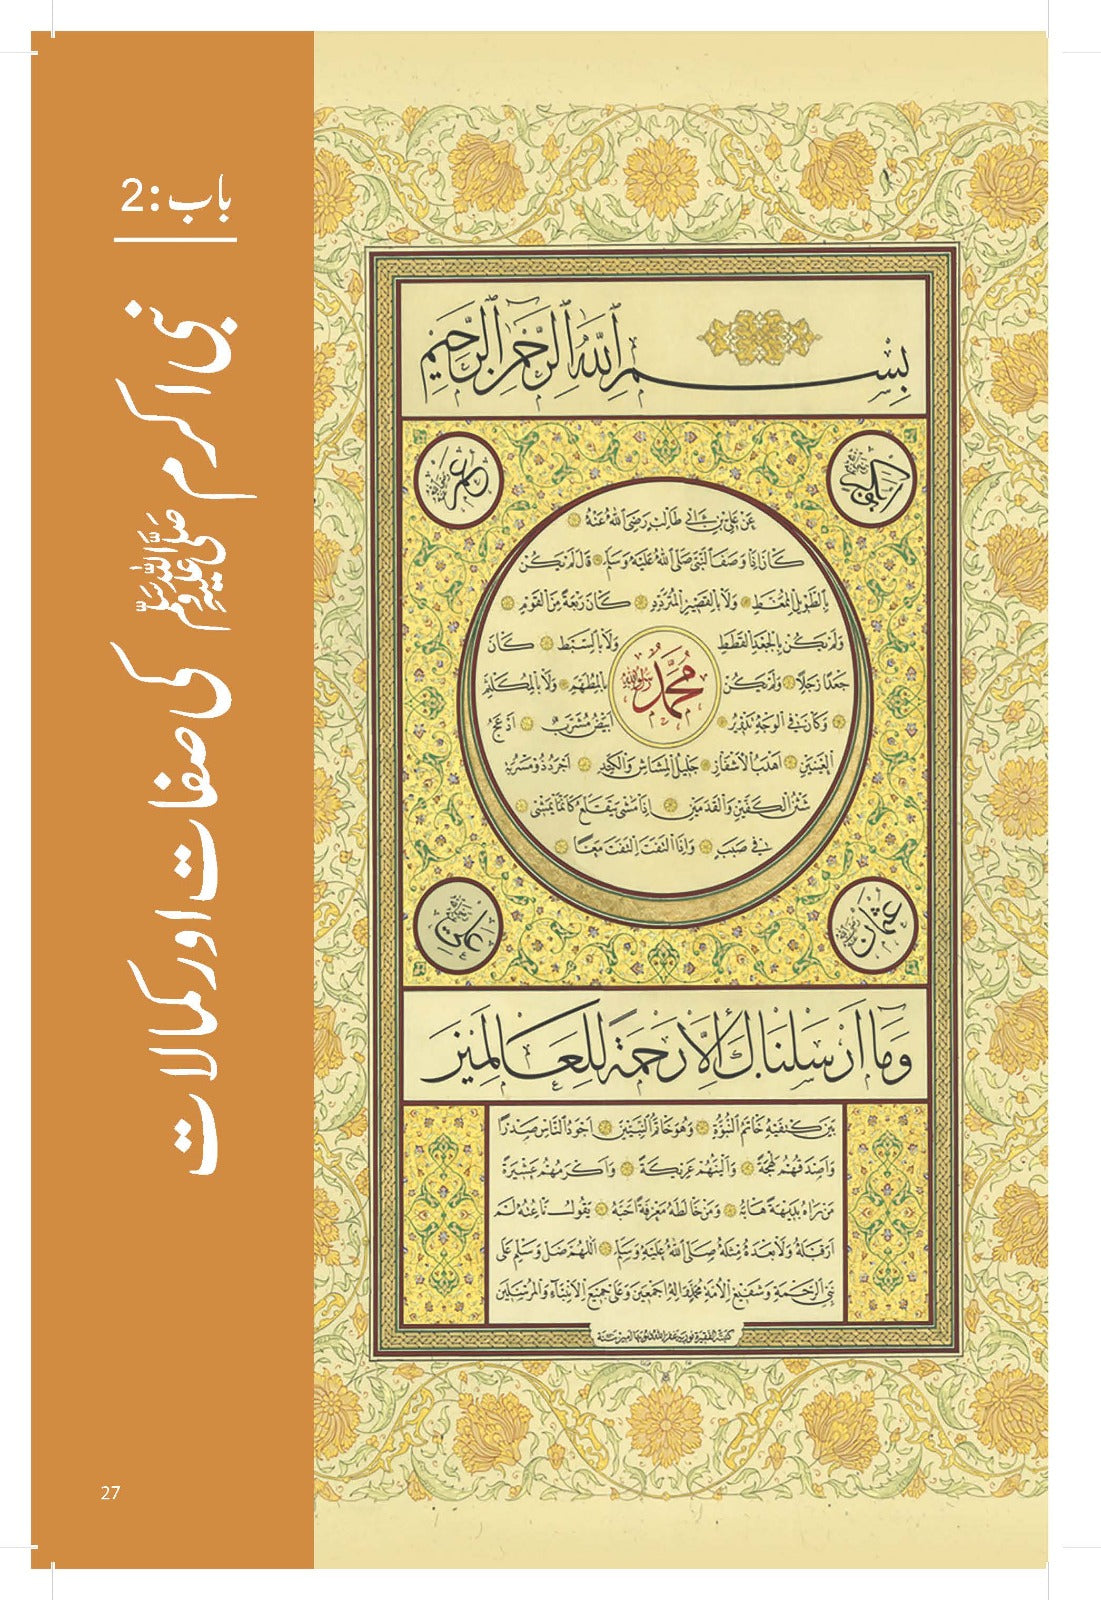 باب:2
نبی اکرم صلی اللہ علیہ وسلم کی صفات اور کمالات
بسم الله الرحمن الرحيم
ابوبكر رضي الله عنه
عمر رضي الله عنه
عن علي بن ابي طالب رضي الله عنه
كان اذا وصف النبي صلى الله عليه وسلم قال لم يكن
بالطويل الممغط ولا بالقصير المتردد كان ربعة من القوم
ولم يكن بالجعد القطط ولا بالسبط كان
جعدا رجلا ولم يكن بالمطهم ولا بالمكلثم
محمد رسول الله
وكان في الوجه تدوير ابيض مشرب ادعج
العينين اهدب الاشفار جليل المشاش والكتد اجرد ذو مسربة
شثن الكفين والقدمين اذا مشى يتقلع كانما يمشي
في صبب واذا التفت التفت معا
عثمان رضي الله عنه
علي رضي الله عنه
وما ارسلناك الا رحمة للعالمين
بين كتفيه خاتم النبوة وهو خاتم النبيين اجود الناس صدرا
واصدقهم لهجة والينهم عريكة واكرمهم عشيرة
من راه بديهة هابه ومن خالطه معرفة احبه يقول ناعته لم
ار قبله ولا بعده مثله صلى الله عليه وسلم اللهم صل وسلم على
نبي الرحمة وشفيع الامة محمد واله اجمعين وعلى جميع الانبياء والمرسلين
27